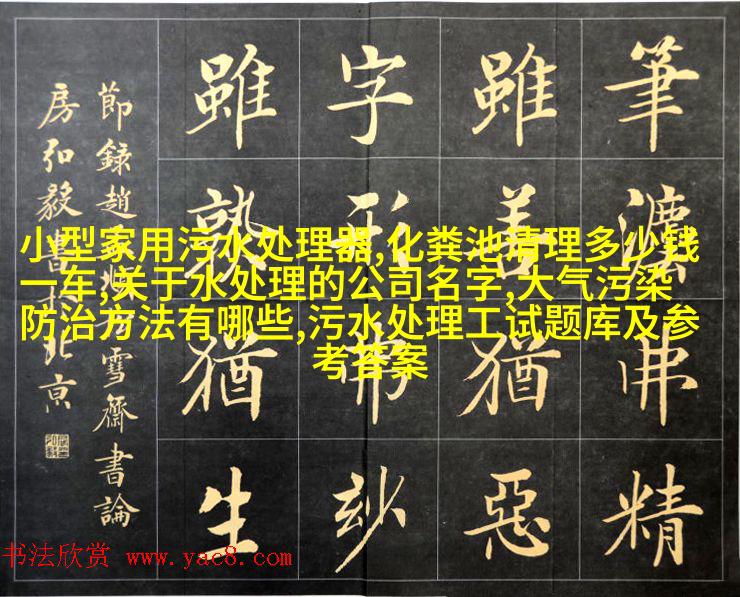 筆灋弗精
雖善猶惡
字形弗玅
雖熟猶生
節錄趙孟頫松雪齋書論
房弘毅書於北亰
小型家用污水处理器,化粪池清理多少钱
一车,关于水处理的公司名字,大气污染
防治方法有哪些,污水处理工试题库及参
考答案
书法欣赏 www.yac8.com